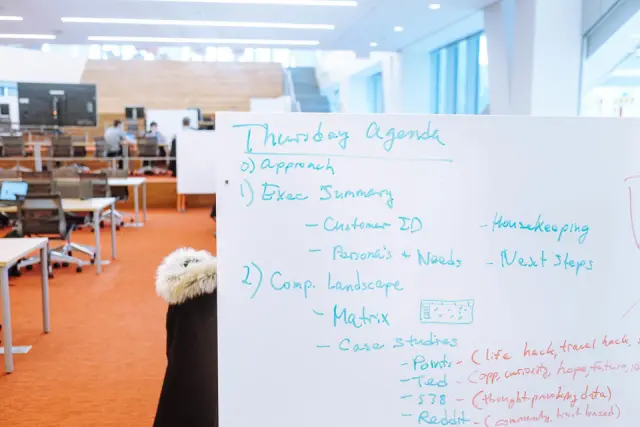 Thursday Agenda
0) Approach
1) Exec Summary
- Customer ID
- Housekeeping
- Persona's + Needs
- Next Steps
2) Comp. Landscape
- Matrix
- Case studies
- Points - (life hack, travel hack,
- Ted - (opp, curiosity, hope, future,
- 538 - (thought provoking data)
- Reddit - (community, based)